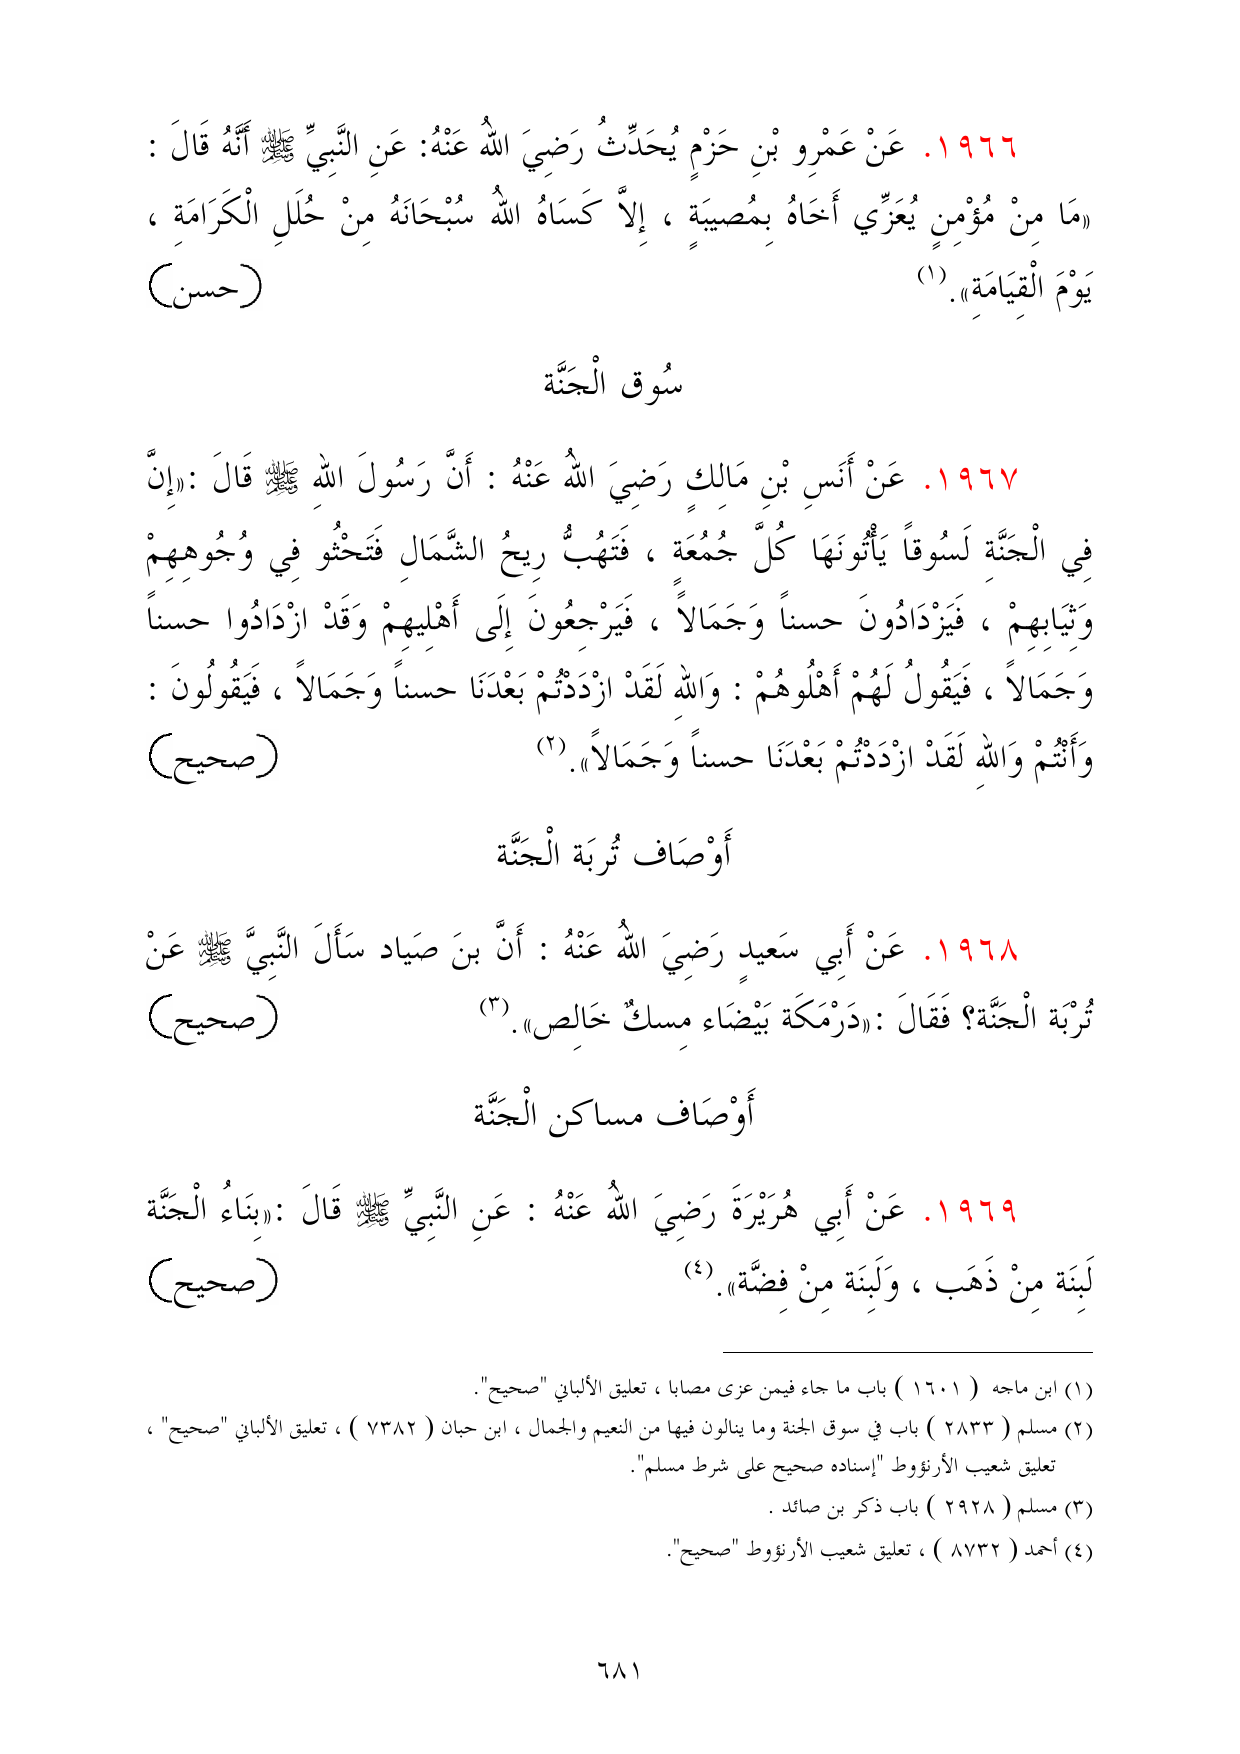 ١٩٦٦. عَنْ عَمْرِو بْنِ حَزْمٍ يُحَدِّثُ رَضِيَ اللهُ عَنْهُ: عَنِ النَّبِيِّ ﷺ أَنَّهُ قَالَ :
«مَا مِنْ مُؤْمِنٍ يُعَزِّي أَخَاهُ بِمُصِيبَةٍ ، إِلاَّ كَسَاهُ اللهُ سُبْحَانَهُ مِنْ حُلَلِ الْكَرَامَةِ ،
يَوْمَ الْقِيَامَةِ».(١) (حسن)
سُوق الْجَنَّة
١٩٦٧. عَنْ أَنَسِ بْنِ مَالِكٍ رَضِيَ اللهُ عَنْهُ : أَنَّ رَسُولَ اللهِ ﷺ قَالَ :«إِنَّ
فِي الْجَنَّةِ لَسُوقاً يَأْتُونَهَا كُلَّ جُمُعَةٍ ، فَتَهُبُّ رِيحُ الشَّمَالِ فَتَحْثُو فِي وُجُوهِهِمْ
وَثِيَابِهِمْ ، فَيَزْدَادُونَ حسناً وَجَمَالاً ، فَيَرْجِعُونَ إِلَى أَهْلِيهِمْ وَقَدْ ازْدَادُوا حسناً
وَجَمَالاً ، فَيَقُولُ لَهُمْ أَهْلُوهُمْ : وَاللهِ لَقَدْ ازْدَدْتُمْ بَعْدَنَا حسناً وَجَمَالاً ، فَيَقُولُونَ :
وَأَنْتُمْ وَاللهِ لَقَدْ ازْدَدْتُمْ بَعْدَنَا حسناً وَجَمَالاً».(٢) (صحيح)
أَوْصَاف تُربَة الْجَنَّة
١٩٦٨. عَنْ أَبِي سَعيدٍ رَضِيَ اللهُ عَنْهُ : أَنَّ بنَ صَياد سَأَلَ النَّبِيَّ ﷺ عَنْ
تُرْبَة الْجَنَّة؟ فَقَالَ :«دَرْمَكَة بَيْضَاء مِسكٌ خَالِص».(٣) (صحيح)
أَوْصَاف مساكن الْجَنَّة
١٩٦٩. عَنْ أَبِي هُرَيْرَةَ رَضِيَ اللهُ عَنْهُ : عَنِ النَّبِيِّ ﷺ قَالَ :«بِنَاءُ الْجَنَّة
لَبِنَة مِنْ ذَهَب ، وَلَبِنَة مِنْ فِضَّة».(٤) (صحيح)
(١) ابن ماجه ( ١٦٠١ ) باب ما جاء فيمن عزى مصابا ، تعليق الألباني "صحيح".
(٢) مسلم ( ٢٨٣٣ ) باب في سوق الجنة وما ينالون فيها من النعيم والجمال ، ابن حبان ( ٧٣٨٢ ) ، تعليق الألباني "صحيح" ،
تعليق شعيب الأرنؤوط "إسناده صحيح على شرط مسلم".
(٣) مسلم ( ٢٩٢٨ ) باب ذكر بن صائد .
(٤) أحمد ( ٨٧٣٢ ) ، تعليق شعيب الأرنؤوط "صحيح".
٦٨١